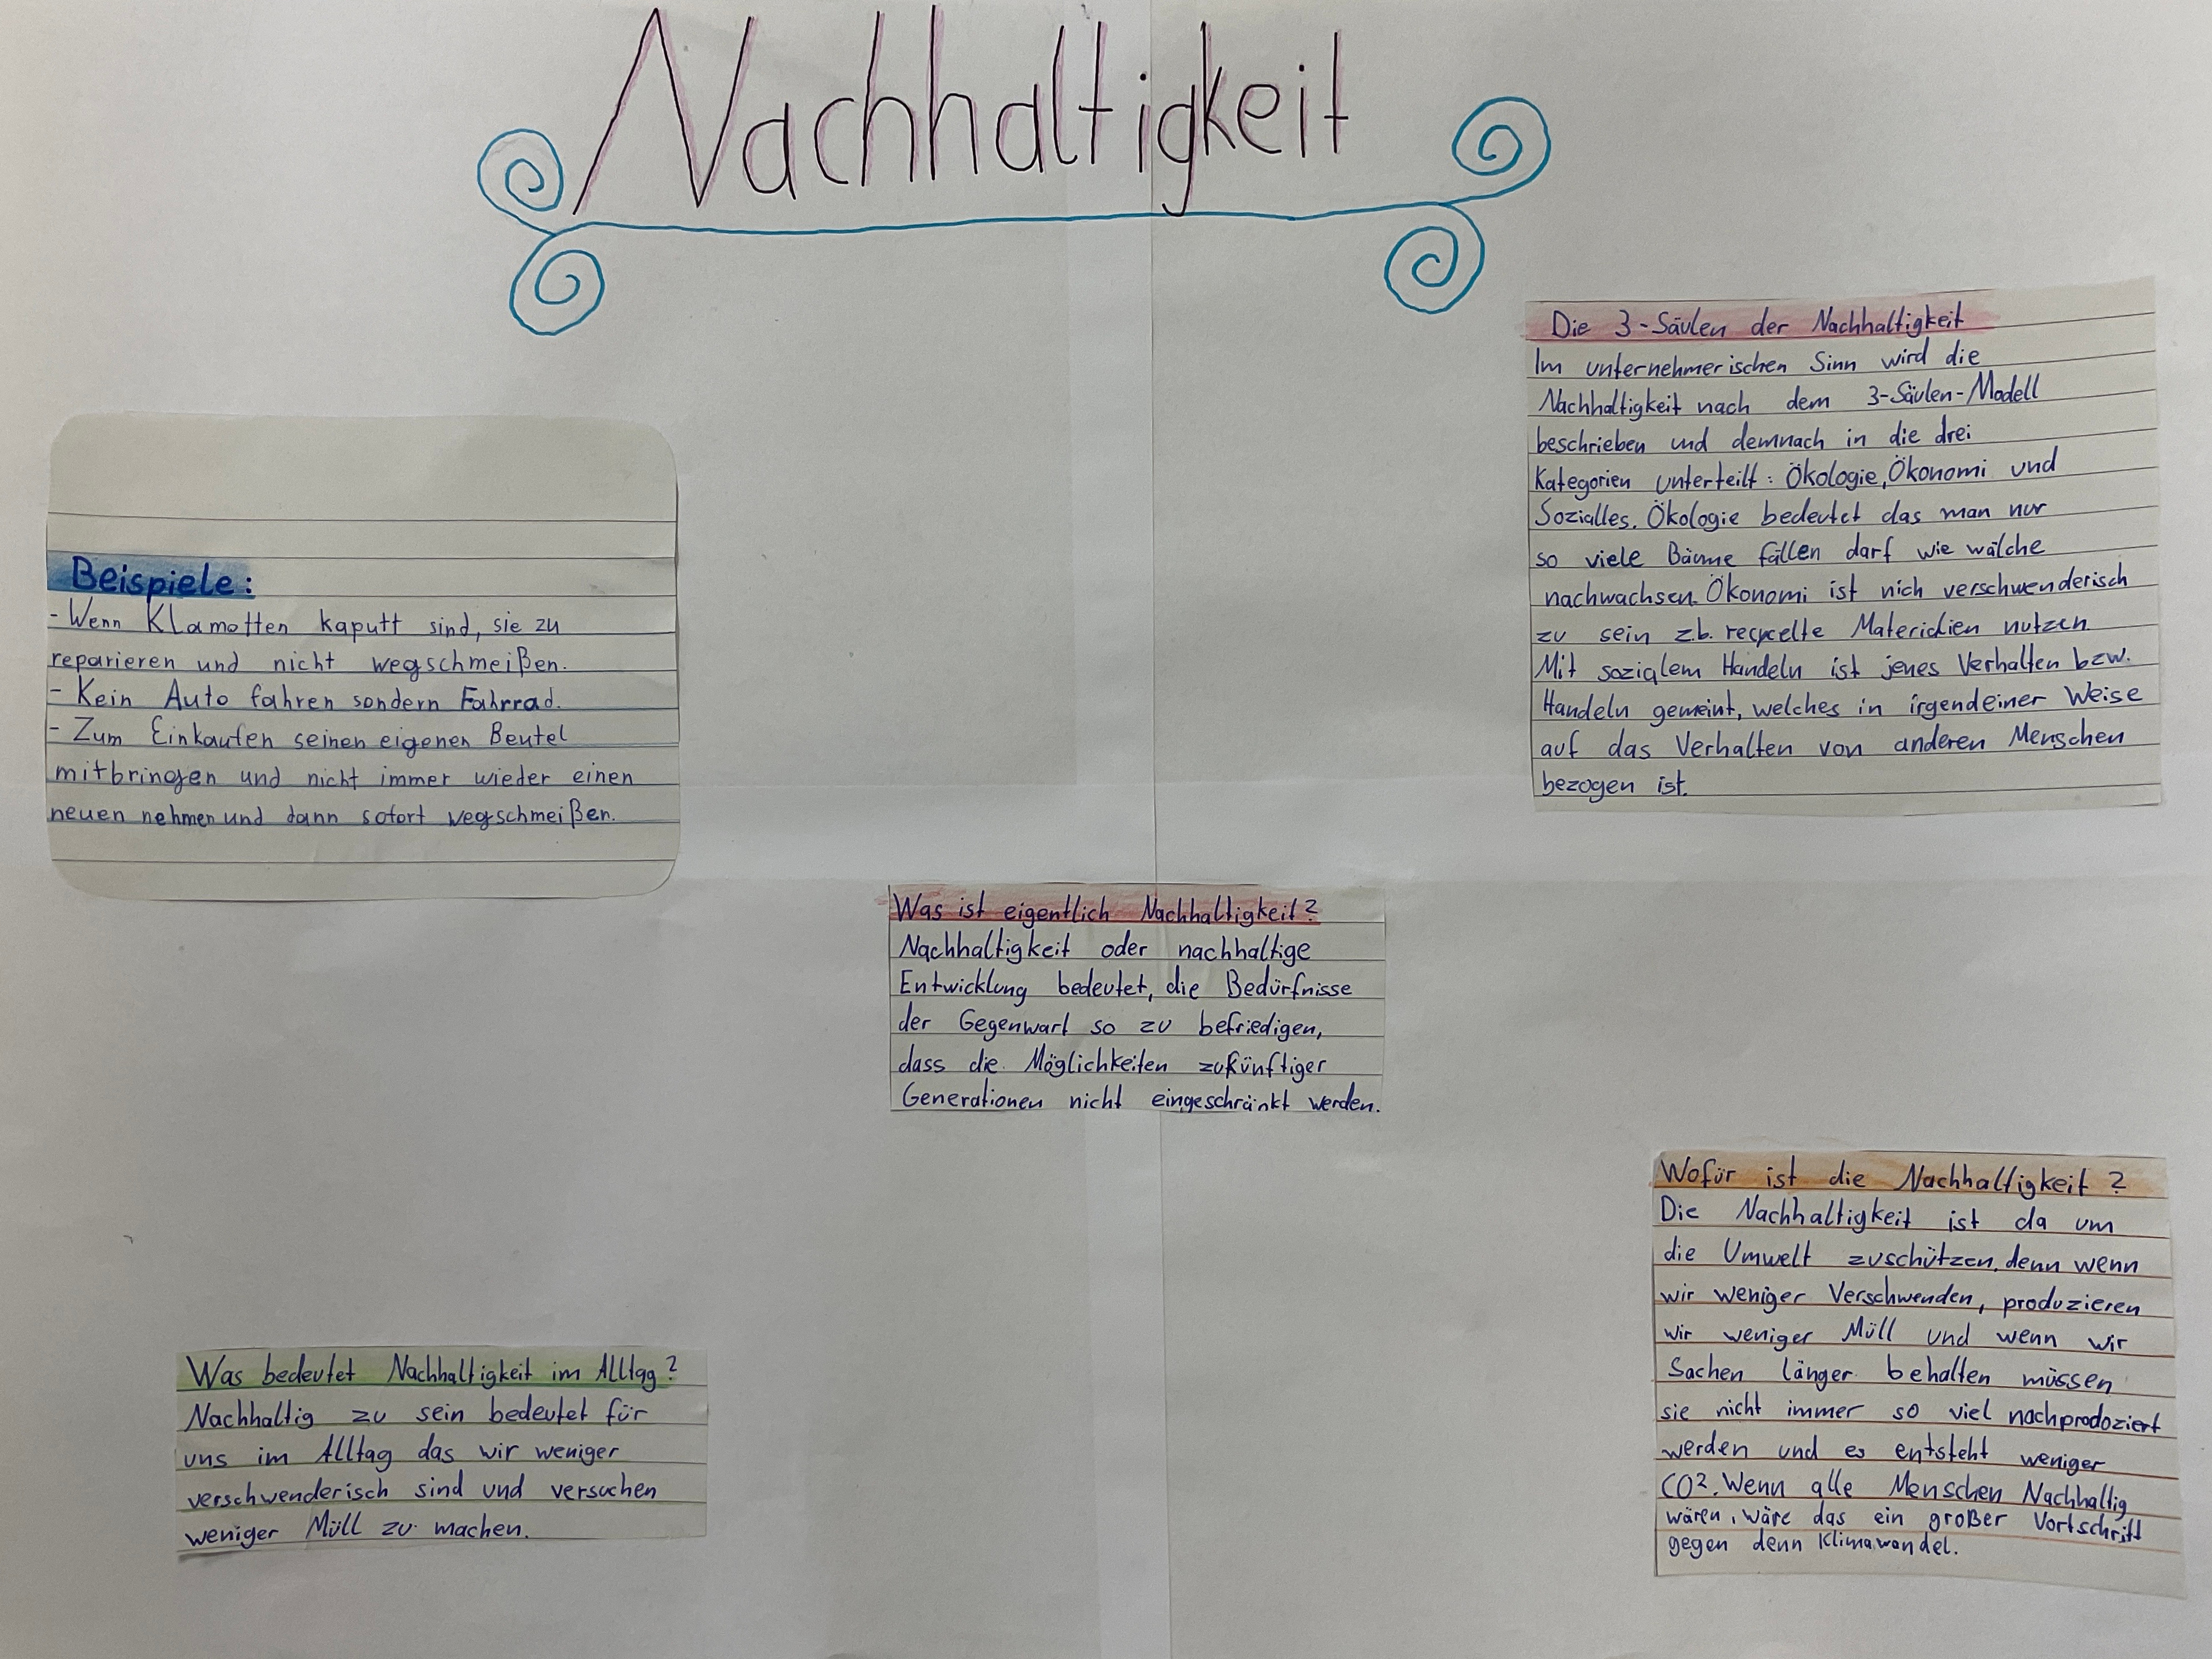 Nachhaltigkeit
Die 3-Säulen der Nachhaltigkeit
Im unternehmerischen Sinn wird die
Nachhaltigkeit nach dem 3-Säulen-Modell
beschrieben und demnach in die drei
Kategorien unterteilt: Ökologie, Ökonomi und
Sozialles. Ökologie bedeutet das man nur
so viele Bäume fällen darf wie wälche
nachwachsen. Ökonomi ist nich verschwenderisch
zu sein z.b. recycelte Materialien nutzen
Mit sozialem Handeln ist jenes Verhalten bzw.
Handeln gemeint, welches in irgendeiner Weise
auf das Verhalten von anderen Menschen
bezogen ist.
Beispiele:
- Wenn Klamotten kaputt sind, sie zu
reparieren und nicht wegschmeißen.
- Kein Auto fahren sondern Fahrrad.
- Zum Einkaufen seinen eigenen Beutel
mitbringen und nicht immer wieder einen
neuen nehmen und dann sofort wegschmeißen.
Was ist eigentlich Nachhaltigkeit?
Nachhaltigkeit oder nachhaltige
Entwicklung bedeutet, die Bedürfnisse
der Gegenwart so zu befriedigen,
dass die Möglichkeiten zukünftiger
Generationen nicht eingeschränkt werden.
Wofür ist die Nachhaltigkeit?
Die Nachhaltigkeit ist da um
die Umwelt zuschützen, denn wenn
wir weniger Verschwenden, produzieren
wir weniger Müll und wenn wir
Sachen länger behalten müssen
sie nicht immer so viel nachprodoziert
werden und es entsteht weniger
CO². Wenn alle Menschen Nachhaltig
wären, wäre das ein großer Vortschritt
gegen denn Klimawandel.
Was bedeutet Nachhaltigkeit im Alltag?
Nachhaltig zu sein bedeutet für
uns im Alltag das wir weniger
verschwenderisch sind und versuchen
weniger Müll zu machen.